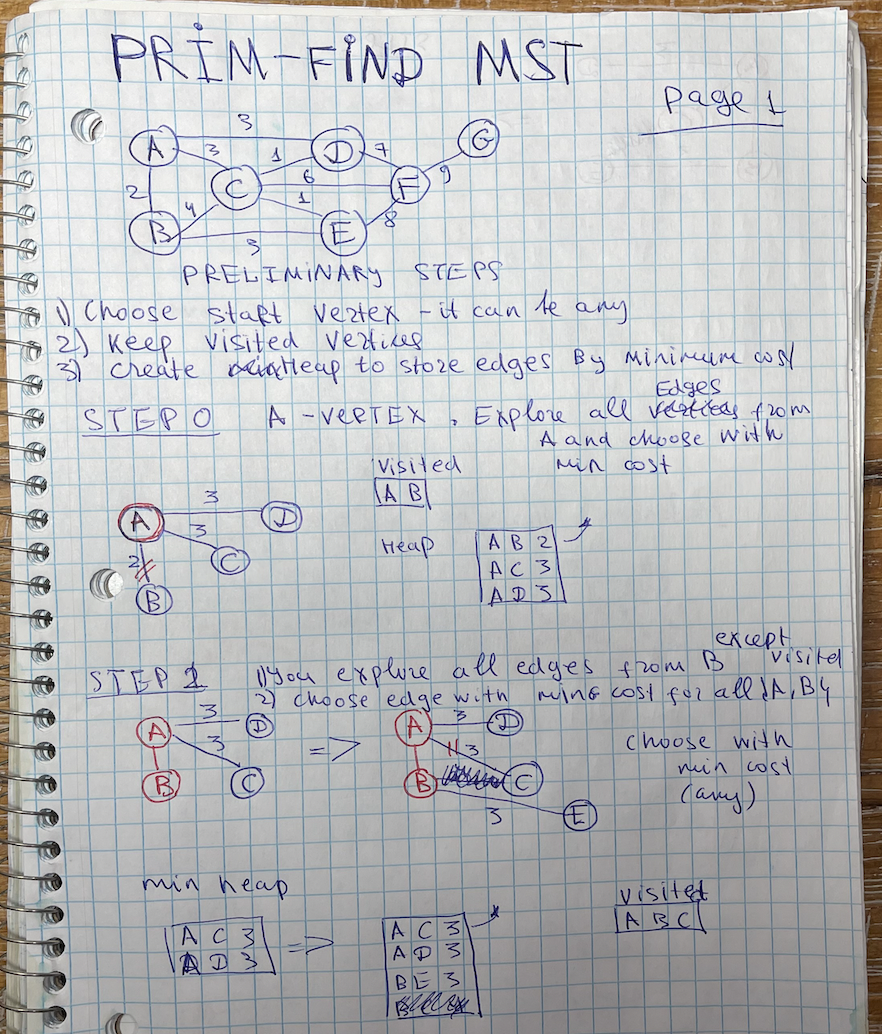 PRIM-FIND MST
Page 1
3
A 3 1 D 7 G
C 6 F 9
2 4 1
B 3 E 8
PRELIMINARY STEPS
1) Choose start vertex - it can be any
2) Keep visited vertices
3) create minHeap to store edges By minimum cost
Edges
STEP 0 A - VERTEX. Explore all vertices from
A and choose with
min cost
visited
A B
3
A 3 D
2 C
B
Heap
A B 2
A C 3
A D 3
except
STEP 1 1) you explore all edges from B visited
2) choose edge with min cost for all {A, B}
3
A D
3
B C
=>
A 3 D
3
B C
3 E
choose with
min cost
(any)
min heap
A C 3
A D 3
=>
A C 3
A D 3
B E 3
visited
A B C